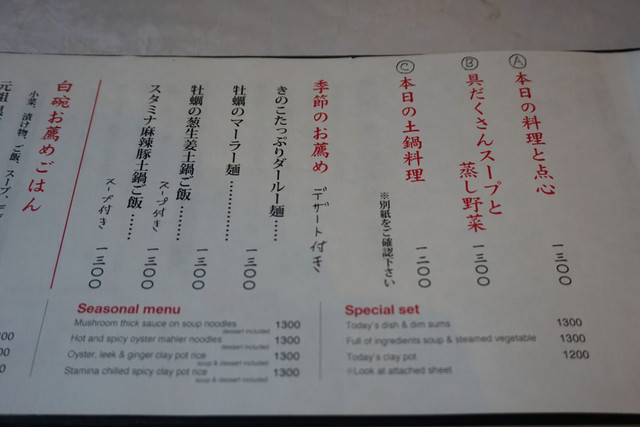 Ⓐ 本日の料理と点心 一三〇〇
Ⓑ 具だくさんスープと
蒸し野菜 一三〇〇
Ⓒ 本日の土鍋料理 一二〇〇
※別紙をご確認下さい
季節のお薦め デザート付き
きのこたっぷりダールー麺…… 一三〇〇
牡蠣のマーラー麺……………… 一三〇〇
牡蠣の葱生姜土鍋ご飯……… 一三〇〇
スープ付き
スタミナ麻辣豚土鍋ご飯…… 一三〇〇
スープ付き
白碗お薦めごはん
小菜、漬け物、ご飯、スープ、デ
Special set
Today's dish & dim sums 1300
Full of ingredients soup & steamed vegetable 1300
Today's clay pot 1200
※Look at attached sheet
Seasonal menu
Mushroom thick sauce on soup noodles 1300
dessert included
Hot and spicy oyster mahler noodles 1300
dessert included
Oyster, leek & ginger clay pot rice 1300
soup & dessert included
Stamina chilled spicy clay pot rice 1300
soup & dessert included